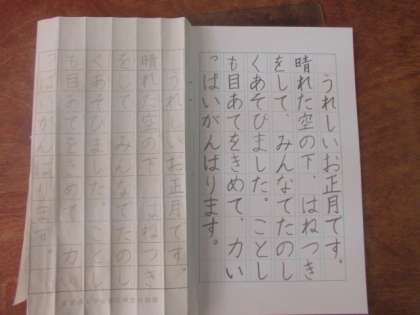 うれしいお正月です。
晴れた空の下、はねつき
をして、みんなでたのし
くあそびました。ことし
も目あてをきめて、力い
っぱいがんばります。
うれしいお正月です。
晴れた空の下、はねつき
をして、みんなでたのし
くあそびました。ことし
も目あてをきめて、力い
っぱいがんばります。